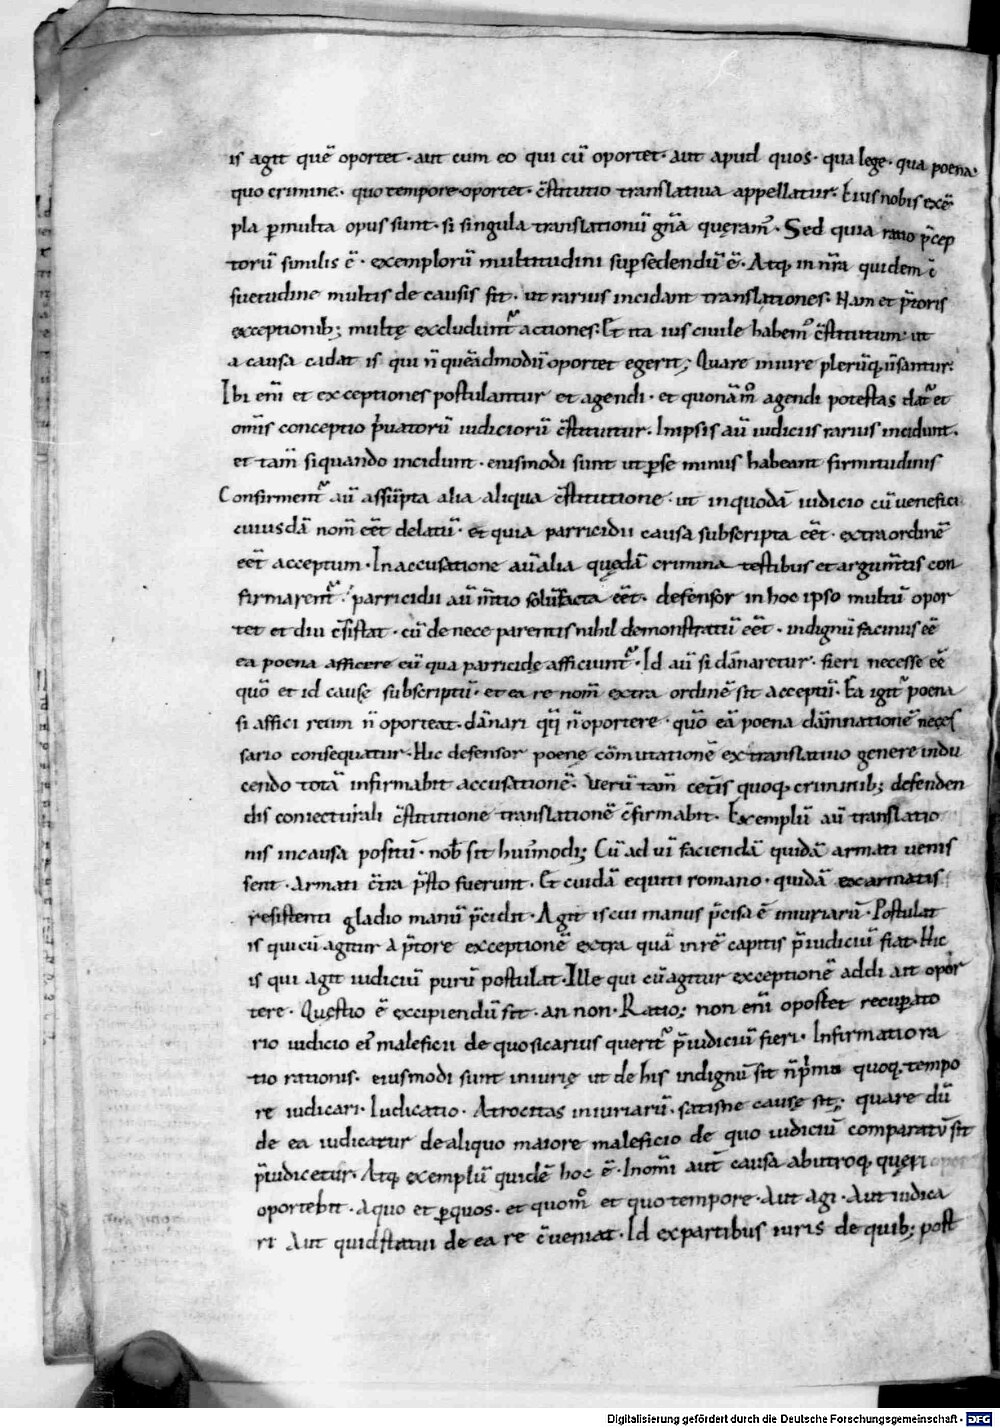 is agit quē oportet · aut cum eo qui cū oportet · aut apud quos · qua lege · qua poena ·
quo crimine · quo tempore oportet · c̄stitutio translatiua appellatur · Eius nobis exē
pla p̱multa opus sunt · si singula translationū gn̄a quęram᾽ · Sed quia ratio p̄cep
torū similis ē · exemplorū multitudini sup̱sedendū ē · Atq; in nr̄a quidem c̄
suetudine multis de causis fit · ut rarius incidant translationes · Nam et p̄toris
exceptionib; multę excludunt᷑ actiones · Et ita ius ciuile habem᾽ c̄stitutum · ut
a causa cadat is qui n̄ quēadmodū oportet egerit; Quare in iure plerūq; ūsantur ·
Ibi eni̅ et exceptiones postulantur et agendi · et quonām̊ agendi potestas dat᷑ et
omīs conceptio p̄uatorū iudiciorū c̄stituitur · In ipsis aū iudiciis rarius incidunt ·
et tam̄ siquando incidunt · eiusmodi sunt ut p̱ se minus habeant firmitudinis
Confirment᷑ aū assūpta alia aliqua c̄stitutione · ut in quodā iudicio cū uenefici
cuiusdā nom̄ eēt delatū · et quia parricidii causa subscripta eēt · extra ordinē
eēt acceptum · In accusatione aū alia quędā crimina testibus et argum̄tis con
firmarent᷑ · parricidii aū m̄tio solū facta eēt · defensor in hoc ipso multū opor
tet et diu c̄sistat · cū de nece parentis nihil demonstratū eēt · indignū facinus eē
ea poena afficere eū qua parricidę afficiunt᷑ · Id aū si dānaretur · fieri necesse eē
quō et id causę subscriptū · et ea re nom̄ extra ordinē sit acceptū · Ea igit᷑ poena
si affici reum n̄ oporteat · dānari qq̄ n̄ oportere · quō eā poena dāmnationē neces
sario consequatur · Hic defensor poenę cōmutationē ex translatiuo genere indu
cendo totā infirmabit accusationē · Verū tam̄ cet̄is quoq; criminib; defenden
dis coniecturali c̄stitutione translationē c̄firmabit · Exemplū aū translatio
nis in causa positū · nob̄ sit huīmodi; Cū ad uī faciendā quidā armati uenis
sent · Armati c̄tra p̄sto fuerunt · Et cuidā equiti romano · quidā ex armatis
resistenti gladio manū p̄cidit · Agit is cui manus p̄cisa ē iniuriarū · Postulat
is qui cū agitur a p̄tore exceptionē extra quā in rē capitis p̄iudiciū fiat · Hic
is qui agit iudiciū purū postulat · Ille qui cū agitur exceptionē addi ait opor
tere · Quęstio ē excipiendū sit · an non · Ratio; non eni̅ oportet recup̱ato
rio iudicio ei᾽ maleficii de quo sicarius querit᷑ p̄iudiciū fieri · Infirmatio ra
tio rationis · eiusmodi sunt iniurię ut de his indignū sit n̄ p̄mo quoq; tempo
re iudicari · Iudicatio · Atrocitas iniuriarū · satisne causę sit; quare dū
de ea iudicatur de aliquo maiore maleficio de quo iudiciū comparatū sit
p̄iudicetur · Atq; exemplū quidē hoc ē · In om̄i aut̄ causa ab utroq; quęri
oportebit · A quo et p̱ quos · et quom̊ et quo tempore · Aut agi · Aut iudica
ri Aut quid statui de ea re c̄ueniat · Id ex partibus iuris de quib; post
Digitalisierung gefördert durch die Deutsche Forschungsgemeinschaft - DFG